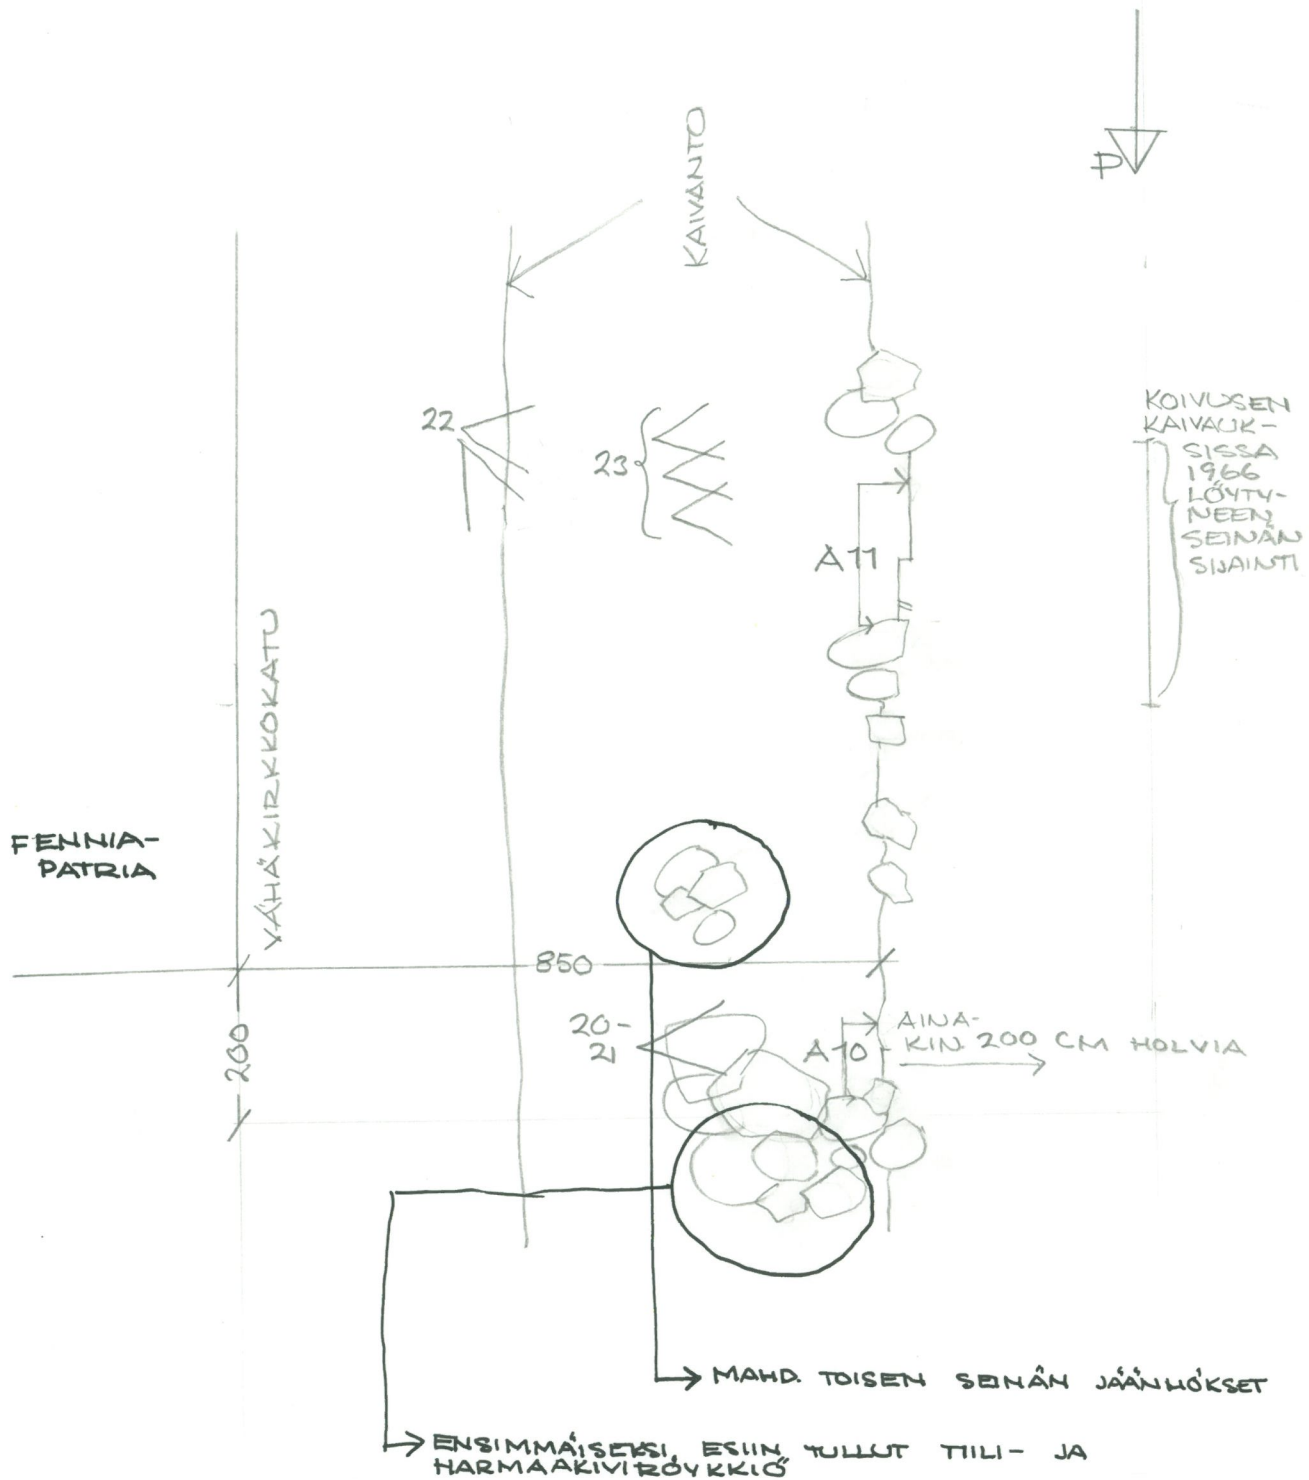 P
KAIVANTO
KOIVUSEN
KAIVAUK-
SISSA
1966
LÖYTY-
NEEN
SEINÄN
SIJAINTI
22
23
A11
VÄHÄKIRKKOKATU
FENNIA-
PATRIA
850
200
20-
21
A10
AINA-
KIN 200 CM HOLVIA
MAHD. TOISEN SEINÄN JÄÄNNÖKSET
ENSIMMÄISEKSI ESIIN TULLUT TIILI- JA
HARMAAKIVIRÖYKKIÖ